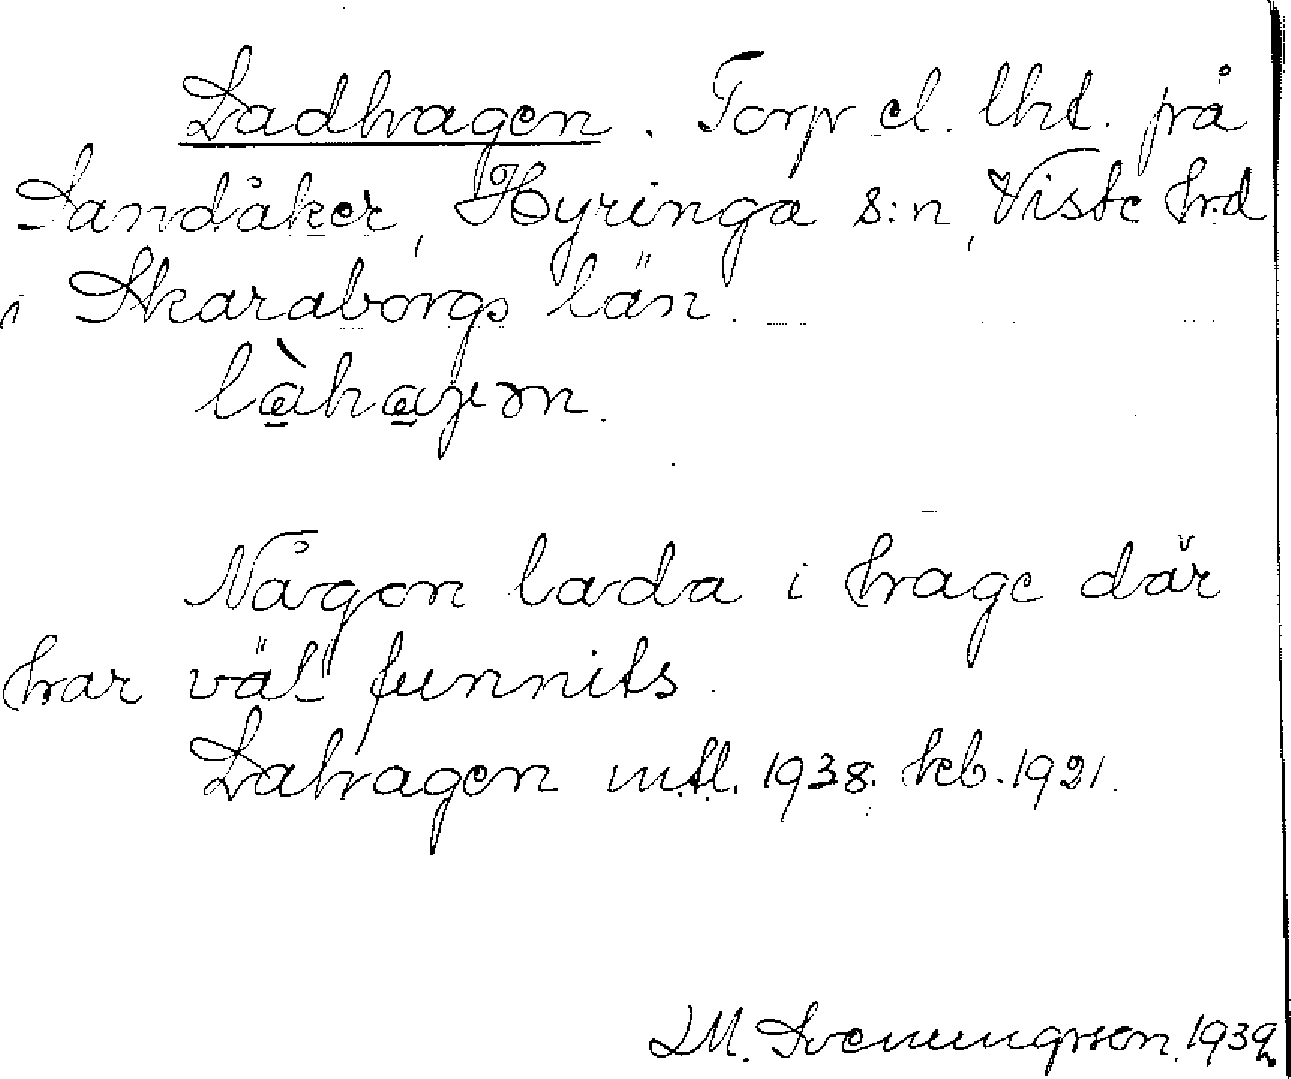 Ladhagen. Torp el. lht. på
Sandåker, Hyringa s:n, Viste hd
i Skaraborgs län.
làhaγən.
Någon lada i hage där
har väl funnits.
Lahagen mtl. 1938. kb. 1921.
LM. Svenungsson. 1939